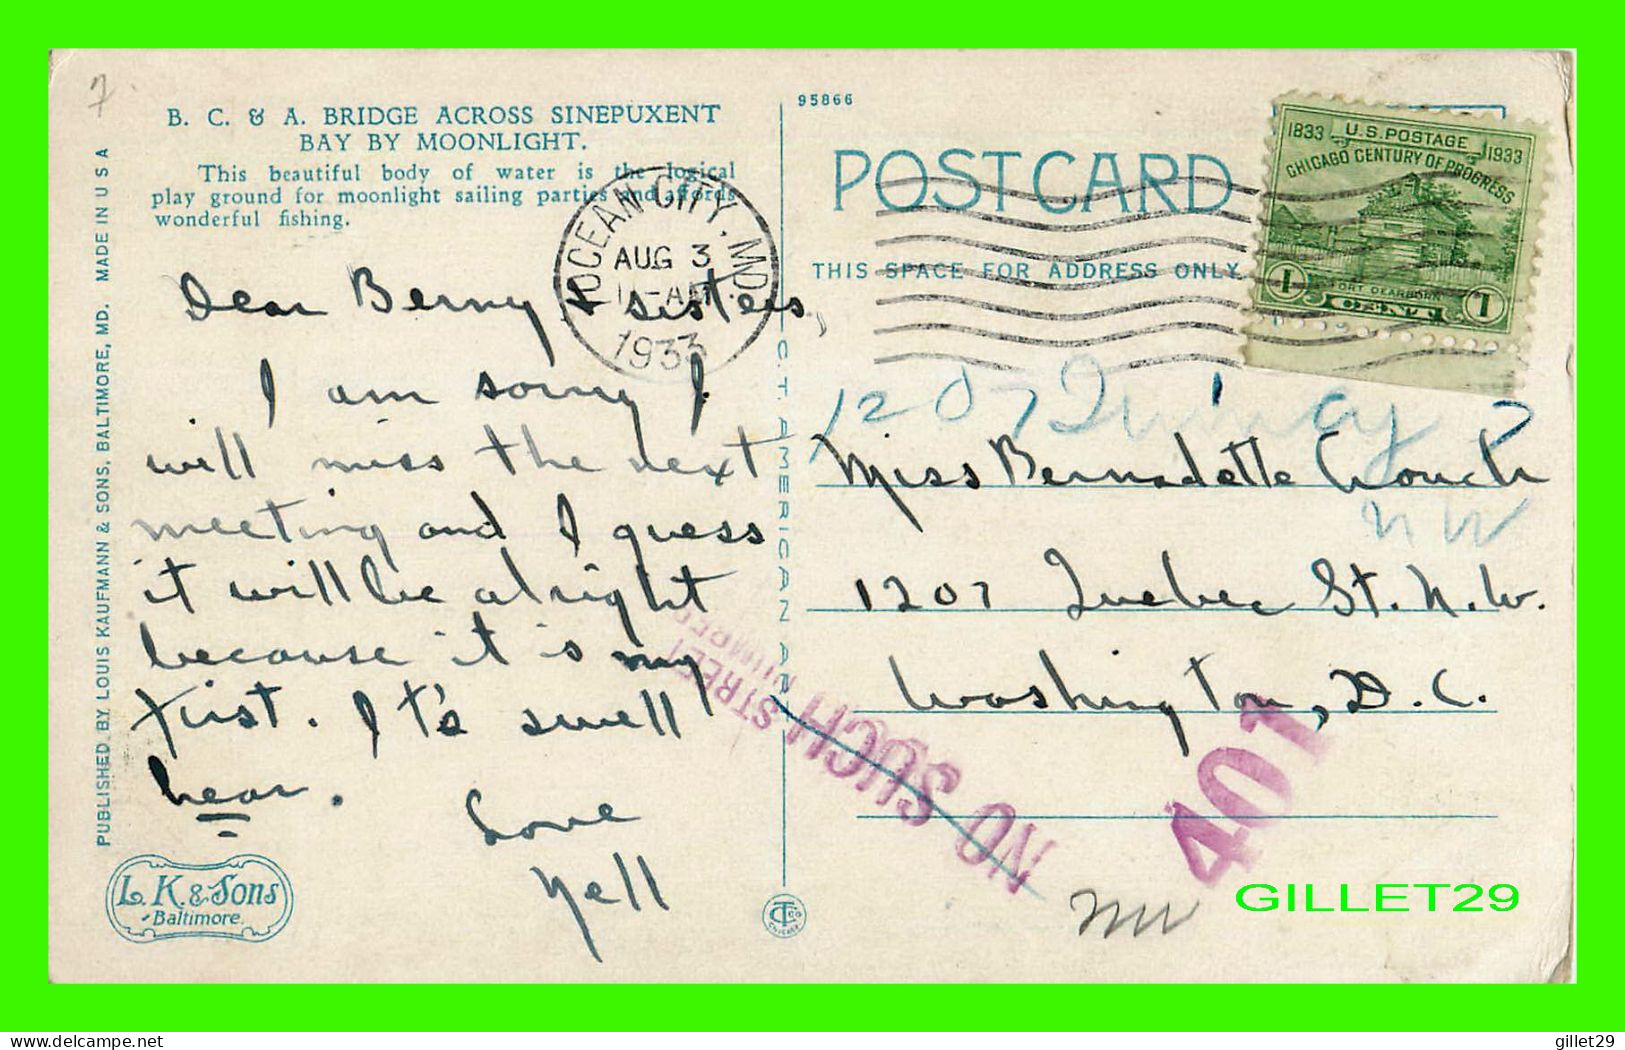 7
B. C. & A. BRIDGE ACROSS SINEPUXENT
BAY BY MOONLIGHT.
This beautiful body of water is the logical
play ground for moonlight sailing parties and affords
wonderful fishing.
Dear Berny & sisters,
I am sorry I
will miss the next
meeting and I guess
it will be alright
because it is my
first. It's swell
hear.
Love
Nell
PUBLISHED BY LOUIS KAUFMANN & SONS, BALTIMORE, MD. MADE IN U S A
L. K. & Sons
Baltimore.
OCEAN CITY, MD.
AUG 3
1933
C. T. AMERICAN ART
CHICAGO
95866
POST CARD
THIS SPACE FOR ADDRESS ONLY
1833 U.S. POSTAGE 1933
CHICAGO CENTURY OF PROGRESS
FORT DEARBORN
1 CENT 1
1207 Quincy
Miss Bernadette Crouch
NW
1207 Quebec St. N.W.
Washington, D. C.
NO SUCH STREET
NUMBER
401
NW
GILLET29
gillet29
gillet29